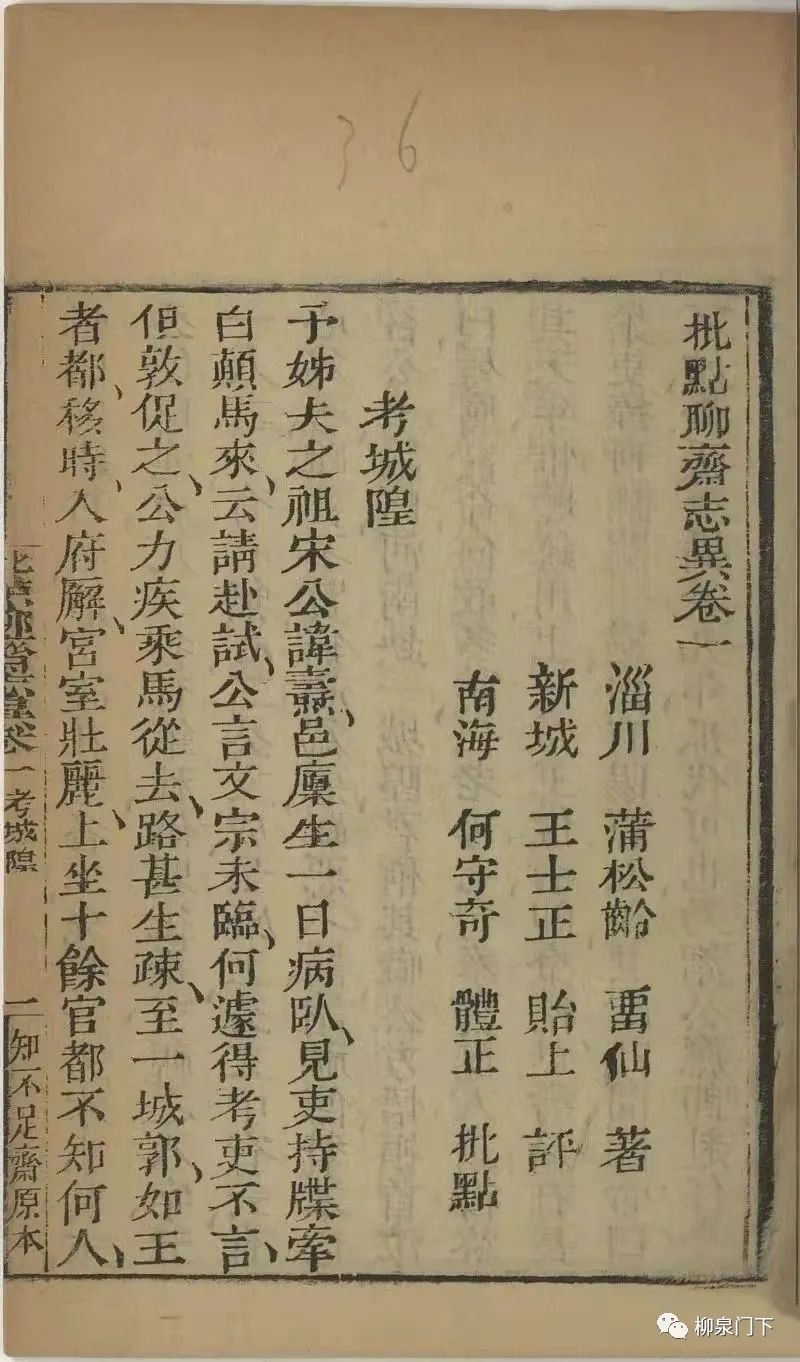 36
批點聊齋志異卷一
淄川 蒲松齡 畱仙 著
新城 王士正 貽上 評
南海 何守奇 體正 批點
考城隍
予姊夫之祖宋公諱燾、邑廩生一日病臥、見吏持牒牽
白顛馬來、云請赴試、公言文宗未臨、何遽得考吏不言、
但敦促之、公力疾乘馬從去、路甚生疎、至一城郭、如王
者都、移時、入府廨、宮室壯麗、上坐十餘官都不知何人、
批點聊齋志異卷一 考城隍 二 知不足齋原本
柳泉门下